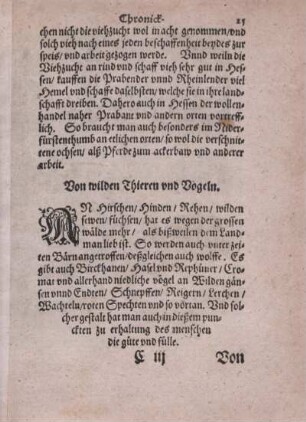 Chronick. 25
chen nicht die viehzucht wol in acht genommen/vnd
solch vieh nach eines jeden beschaffenheit beydes zur
speis/ vnd arbeit gezogen werde. Vnnd weiln die
Viehzucht an rind vnd schaff vieh sehr gut in Hes-
sen/ kauffen die Prabender vnnd Rheinlender viel
Hemel vnd schaffe daselbsten/ welche sie in ihre land-
schafft dreiben. Dahero auch in Hessen der wollen-
handel naher Prabant vnd andern orten vortreff-
lich. So braucht man auch besonders im Nider-
fürstenthumb an etlichen orten/ so wol die verschnit-
tene ochsen/ alß Pferde zum ackerbaw vnd anderer
arbeit.
Von wilden Thieren vnd Vögeln.
AN Hirschen/ Hinden/ Rehen/ wilden
sewen/ füchsen/ hat es wegen der grossen
wälde mehr/ als bißweilen dem Land-
man lieb ist. So werden auch vnter zei-
ten Bärn angetroffen/ deßgleichen auch wolffe. Es
gibt auch Birckhanen/ Hasel vnd Rephüner/ Cro-
mar vnd allerhand niedliche vögel an Wilden gän-
sen vnnd Endten/ Schnepffen/ Reigern/ Lerchen/
Wachteln/ roten Spechten vnd so vortan. Vnd sol-
cher gestalt hat man auch in dießem pun-
ckten zu erhaltung des menschen
die güte vnd fülle.
C iij Von